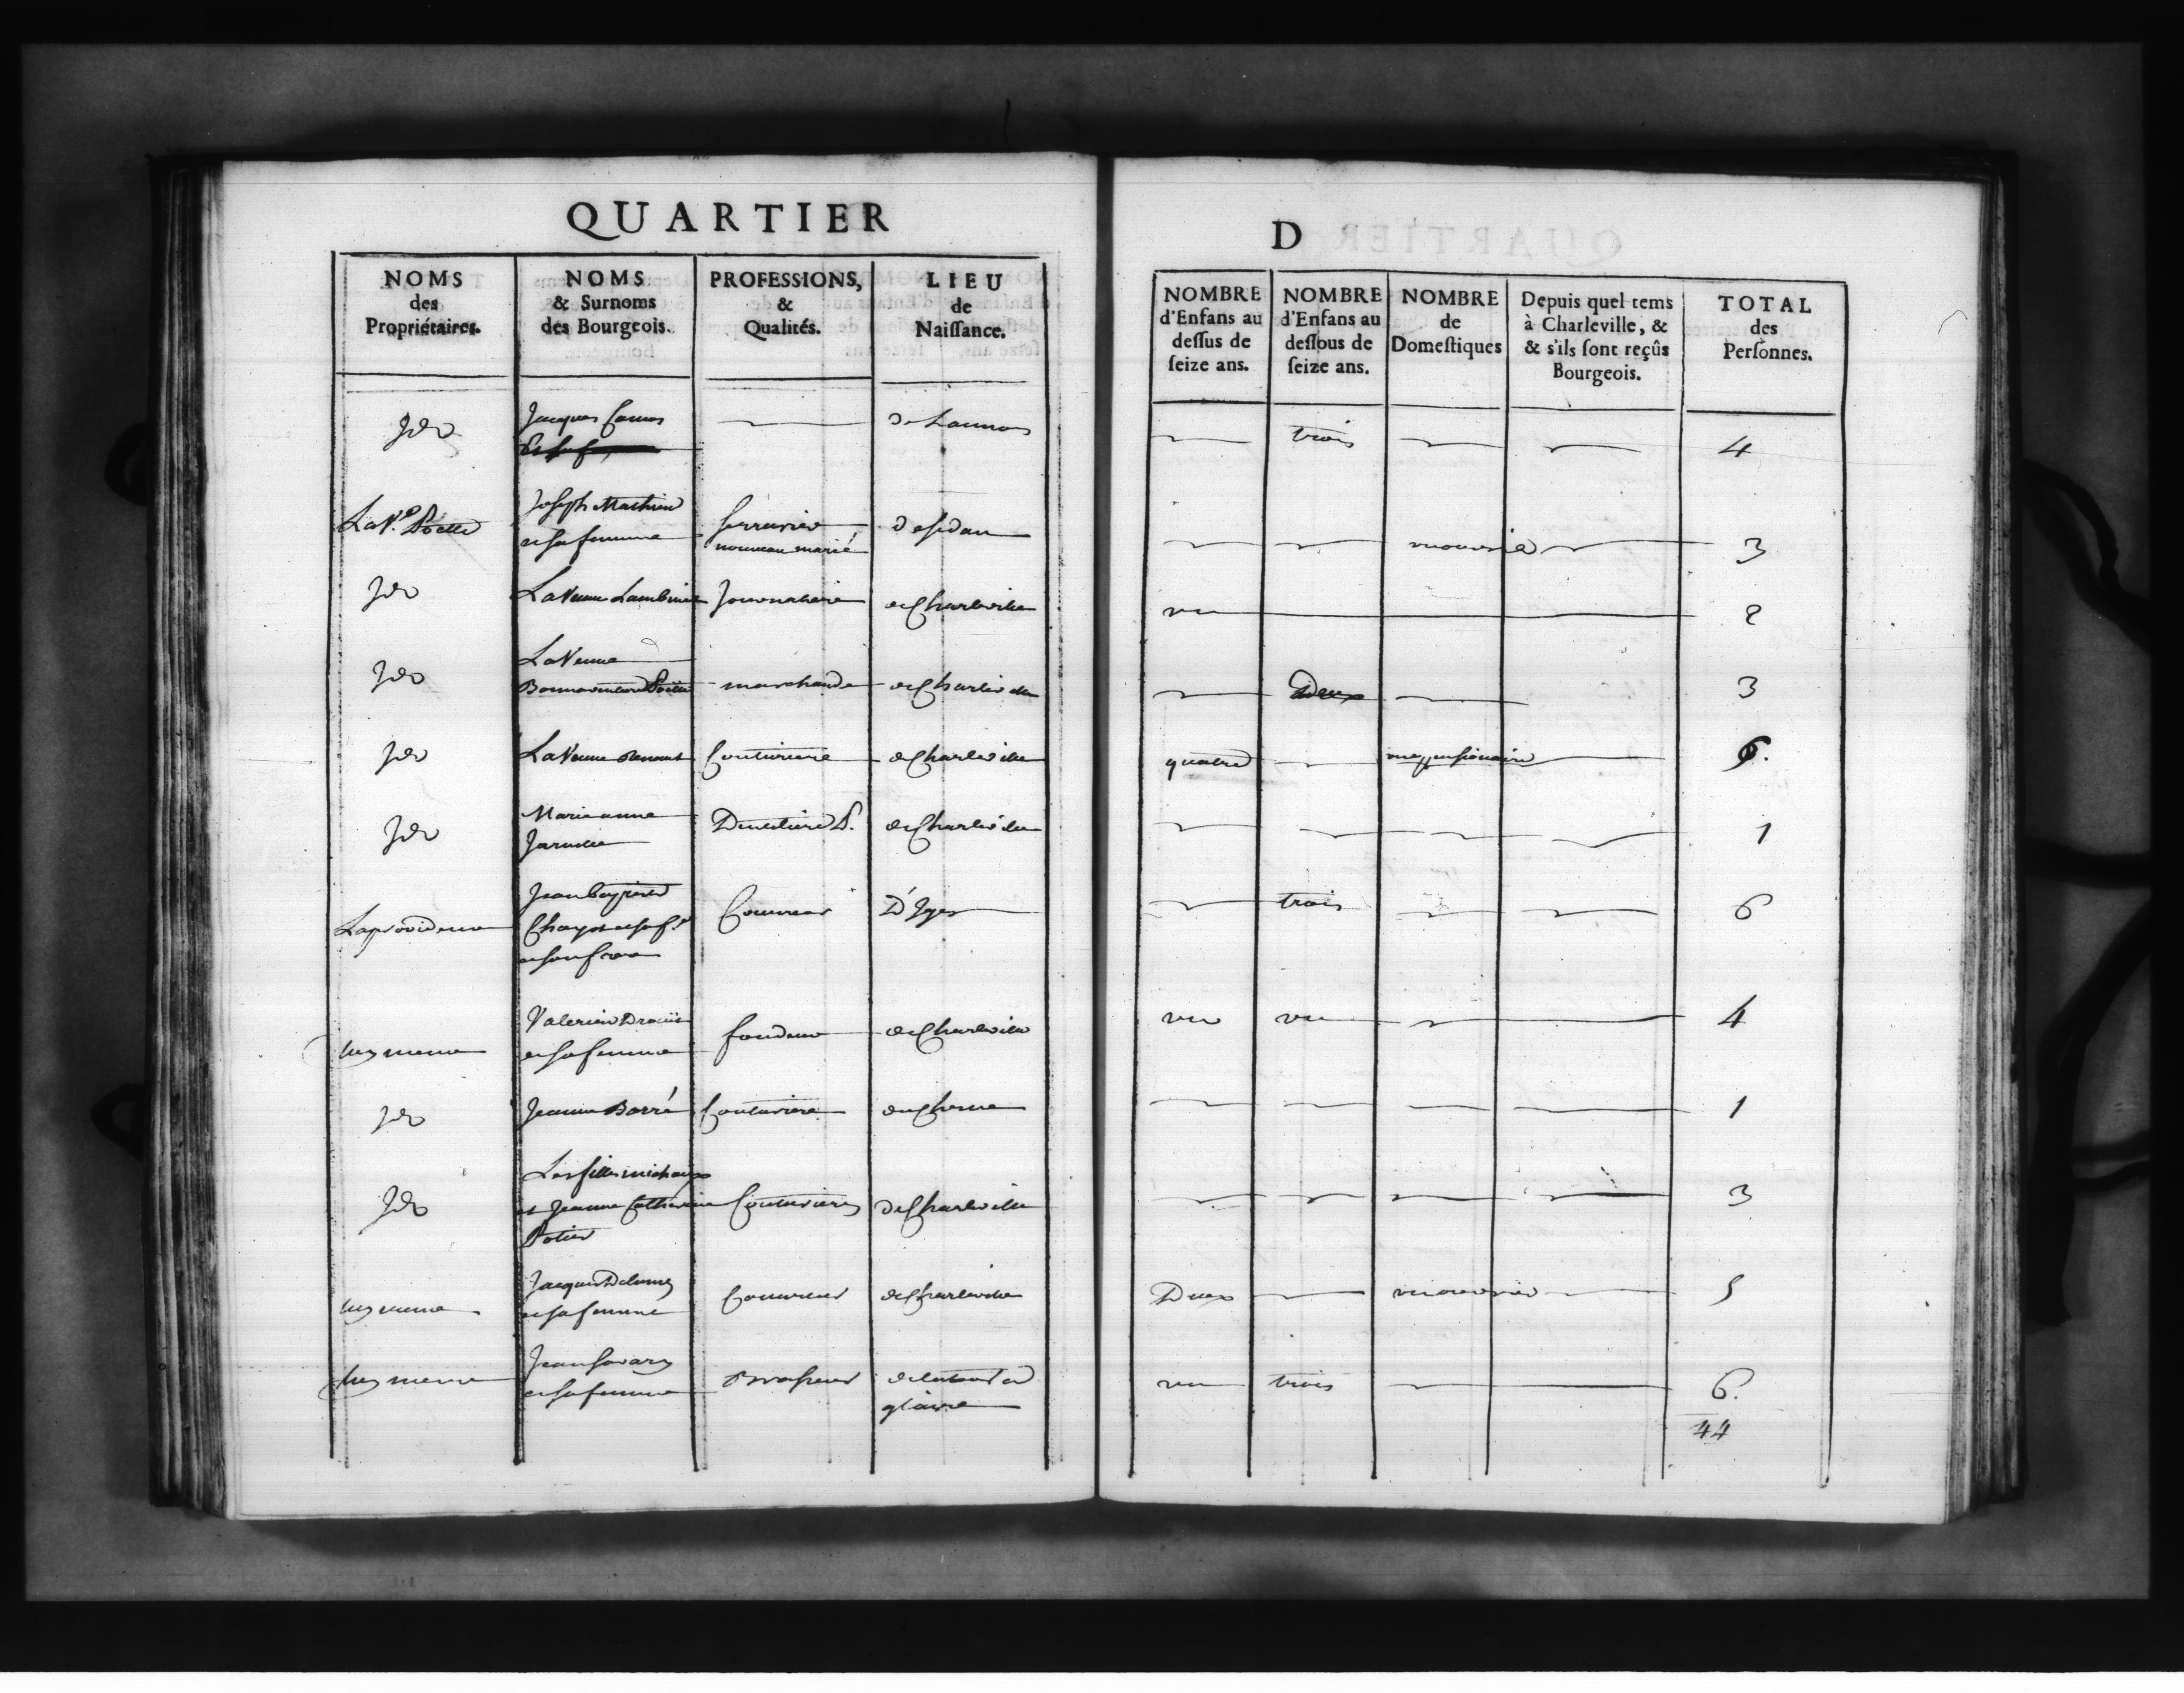 QUARTIER
D
NOMS
des
Propriétaires.
NOMS
& Surnoms
des Bourgeois.
PROFESSIONS,
&
Qualités.
LIEU
de
Naiſſance.
NOMBRE
d'Enfans au
deſſus de
ſeize ans.
NOMBRE
d'Enfans au
deſſous de
ſeize ans.
NOMBRE
de
Domeſtiques
Depuis quel tems
à Charleville, &
& s'ils ſont reçûs
Bourgeois.
TOTAL
des
Perſonnes.
Jd Jacques Camus de Launois trois 4
La Ve. Joseph Mathieu
et sa femme Serrurier de Sedan
nouveau marié un ouvrié 3
Jd La Veuve Journaliere de Charleville un 2
Jd La Veuve
Bonnaventure marchande de Charleville Deux 3
Jd La Veuve Couturiere de Charleville quatre une pensionaire 6.
Jd Marie anne
Dentelière P. de Charleville 1
La providence Jean
et sa f.e
et son frere Couvreur D'Iges trois 6
Luy meme Valerien Droüet
et sa femme fondeur de Charleville un un 4
Jd Jeanne Barré Couturiere du Chesne 1
Jd Les filles michaux
et Jeanne Catherine Couturieres de Charleville 3
Potier
Luy meme Jacques
et sa femme Couvreur de Charleville Deux un ouvrier 5
Luy meme Jean Savary
et sa femme Brasseur de la tour a
glaire un trois 6.
44